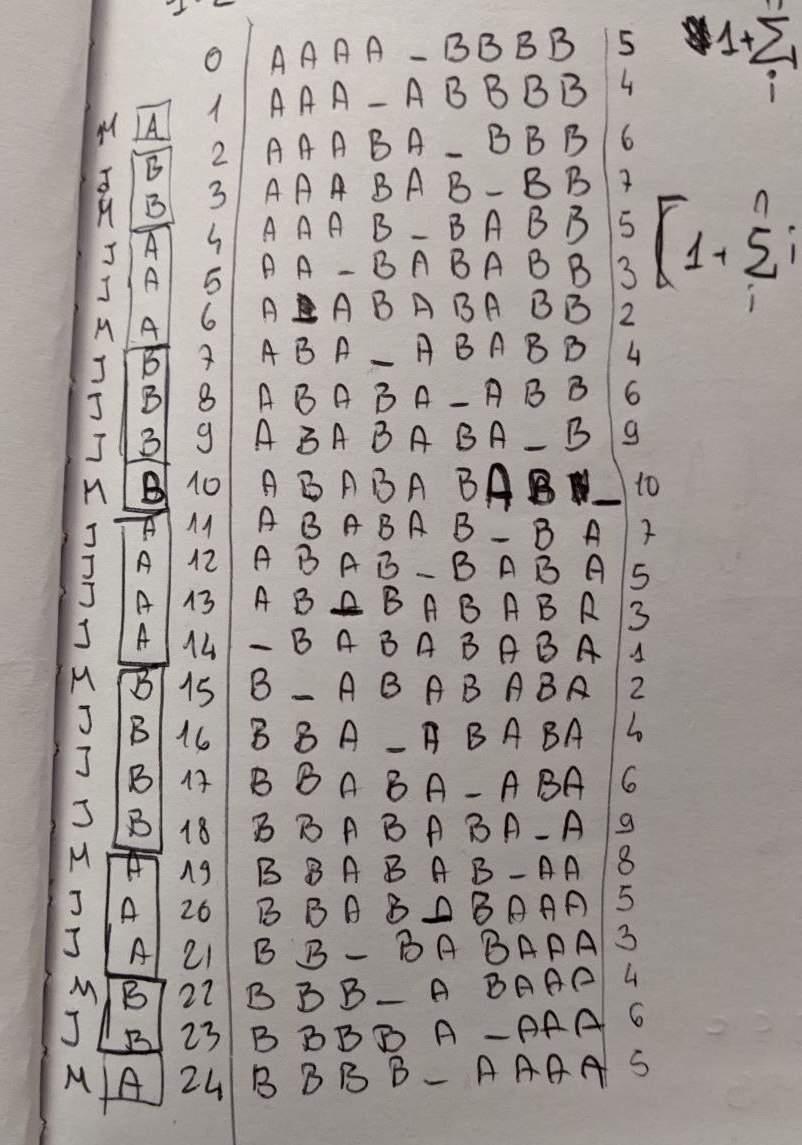 0 A A A A _ B B B B 5 1+∑ n i
M A 1 A A A _ A B B B B 4
J B 2 A A A B A _ B B B 6
M B 3 A A A B A B _ B B 7
J A 4 A A A B _ B A B B 5 [1+ n ∑ i i
J A 5 A A _ B A B A B B 3
M A 6 A A B A B A B B 2
J B 7 A B A _ A B A B B 4
J B 8 A B A B A _ A B B 6
J B 9 A B A B A B A _ B 9
M B 10 A B A B A B A B _ 10
J A 11 A B A B A B _ B A 7
J A 12 A B A B _ B A B A 5
J A 13 A B _ B A B A B A 3
J A 14 _ B A B A B A B A 1
M B 15 B _ A B A B A B A 2
J B 16 B B A _ A B A B A 4
J B 17 B B A B A _ A B A 6
J B 18 B B A B A B A _ A 9
M A 19 B B A B A B _ A A 8
J A 20 B B A B _ B A A A 5
J A 21 B B _ B A B A A A 3
M B 22 B B B _ A B A A A 4
J B 23 B B B B A _ A A A 6
M A 24 B B B B _ A A A A 5